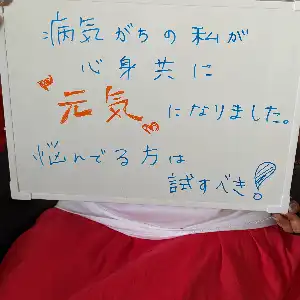 病気がちの私が
心身共に
元気になりました。
悩んでる方は
試すべき!